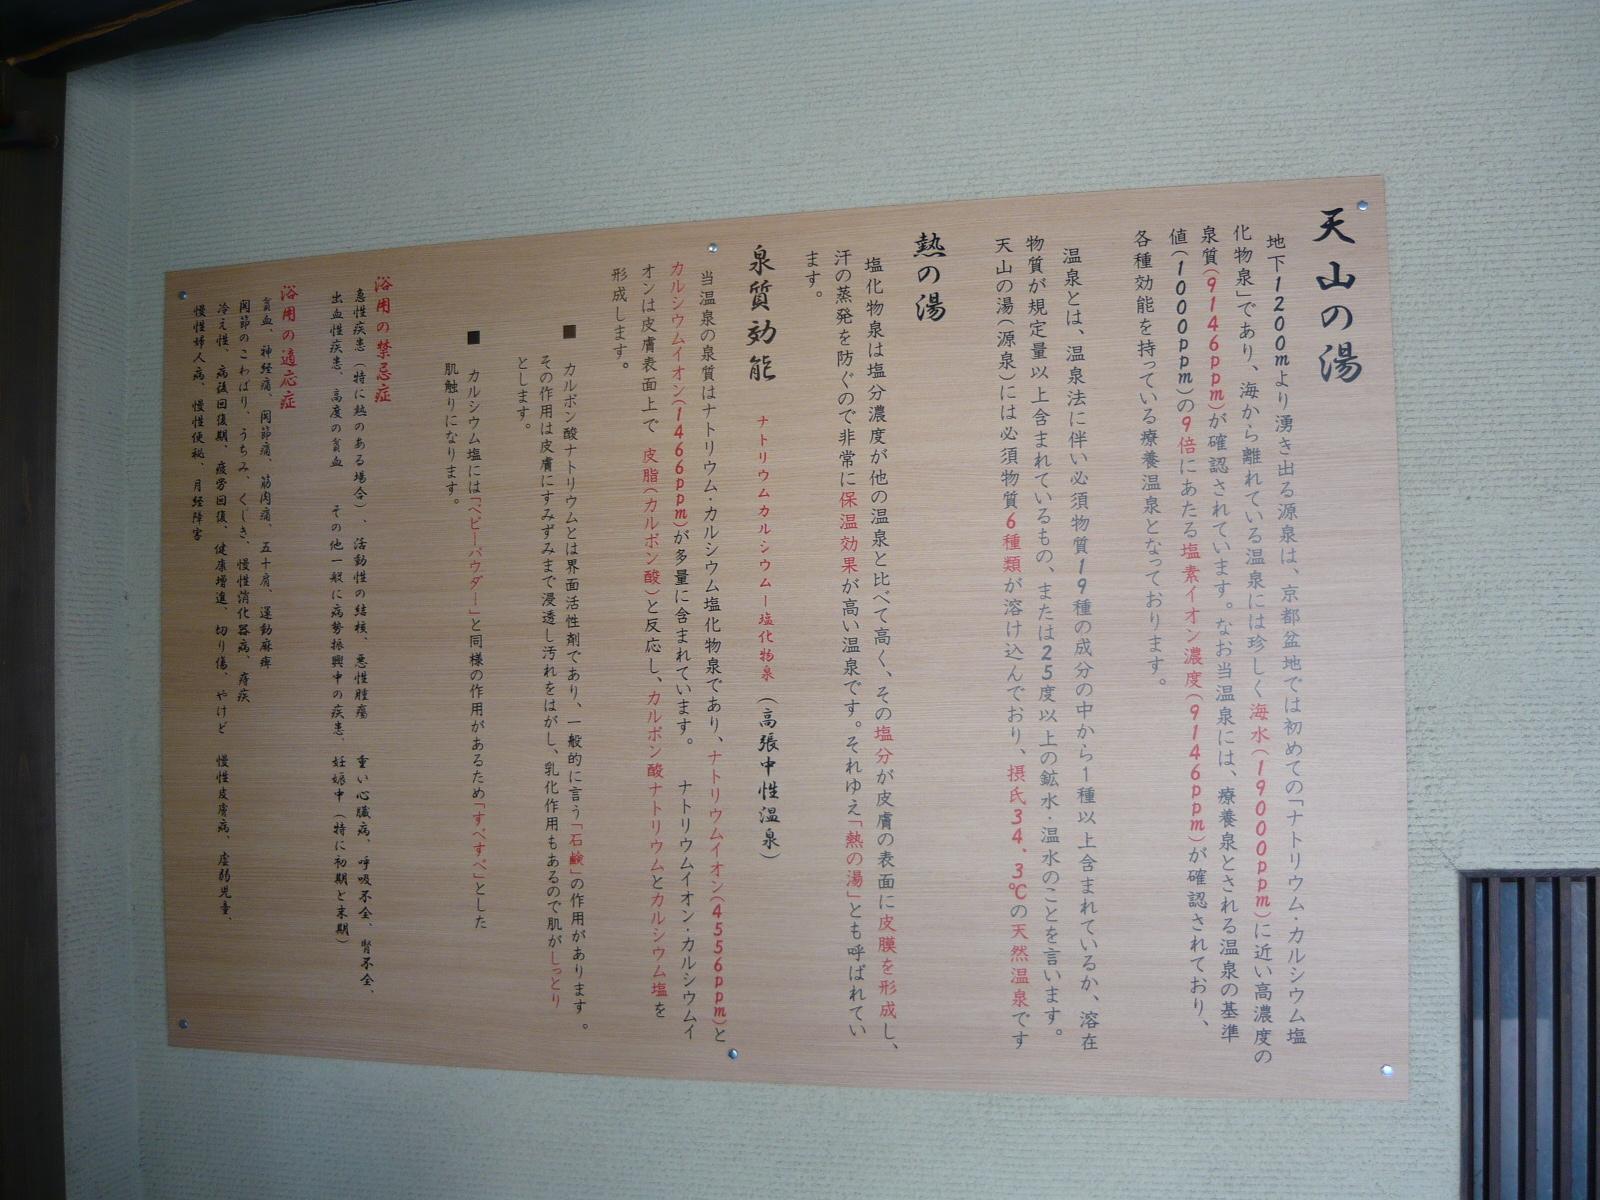 天山の湯
地下1200mより湧き出る源泉は、京都盆地では初めての「ナトリウム・カルシウム塩
化物泉」であり、海から離れている温泉には珍しく海水(19000ppm)に近い高濃度の
泉質(9146ppm)が確認されています。なお当温泉には、療養泉とされる温泉の基準
値(1000ppm)の9倍にあたる塩素イオン濃度(9146ppm)が確認されており、
各種効能を持っている療養温泉となっております。
温泉とは、温泉法に伴い必須物質19種の成分の中から1種以上含まれているか、溶在
物質が規定量以上含まれているもの、または25度以上の鉱水・温水のことを言います。
天山の湯(源泉)には必須物質6種類が溶け込んでおり、摂氏34.3℃の天然温泉です
熱の湯
塩化物泉は塩分濃度が他の温泉と比べて高く、その塩分が皮膚の表面に皮膜を形成し、
汗の蒸発を防ぐので非常に保温効果が高い温泉です。それゆえ「熱の湯」とも呼ばれてい
ます。
泉質効能 ナトリウムカルシウム―塩化物泉 (高張中性温泉)
当温泉の泉質はナトリウム・カルシウム塩化物泉であり、ナトリウムイオン(4556ppm)と
カルシウムイオン(1466ppm)が多量に含まれています。 ナトリウムイオン・カルシウムイ
オンは皮膚表面上で 皮脂(カルボン酸)と反応し、カルボン酸ナトリウムとカルシウム塩を
形成します。
■ カルボン酸ナトリウムとは界面活性剤であり、一般的に言う「石鹸」の作用があります 。
その作用は皮膚にすみずみまで浸透し汚れをはがし、乳化作用もあるので肌がしっとり
とします。
■ カルシウム塩には「ベビーパウダー」と同様の作用があるため「すべすべ」とした
肌触りになります。
浴用の禁忌症
急性疾患(特に熱のある場合)、活動性の結核、悪性腫瘍 重い心臓病、呼吸不全、腎不全、
出血性疾患、高度の貧血 その他一般に病勢振興中の疾患、妊娠中(特に初期と末期)
浴用の適応症
貧血、神経痛、関節痛、筋肉痛、五十肩、運動麻痺
関節のこわばり、うちみ、くじき、慢性消化器病、痔疾
冷え性、病後回復期、疲労回復、健康増進、切り傷、やけど 慢性皮膚病、虚弱児童、
慢性婦人病、慢性便秘、月経障害